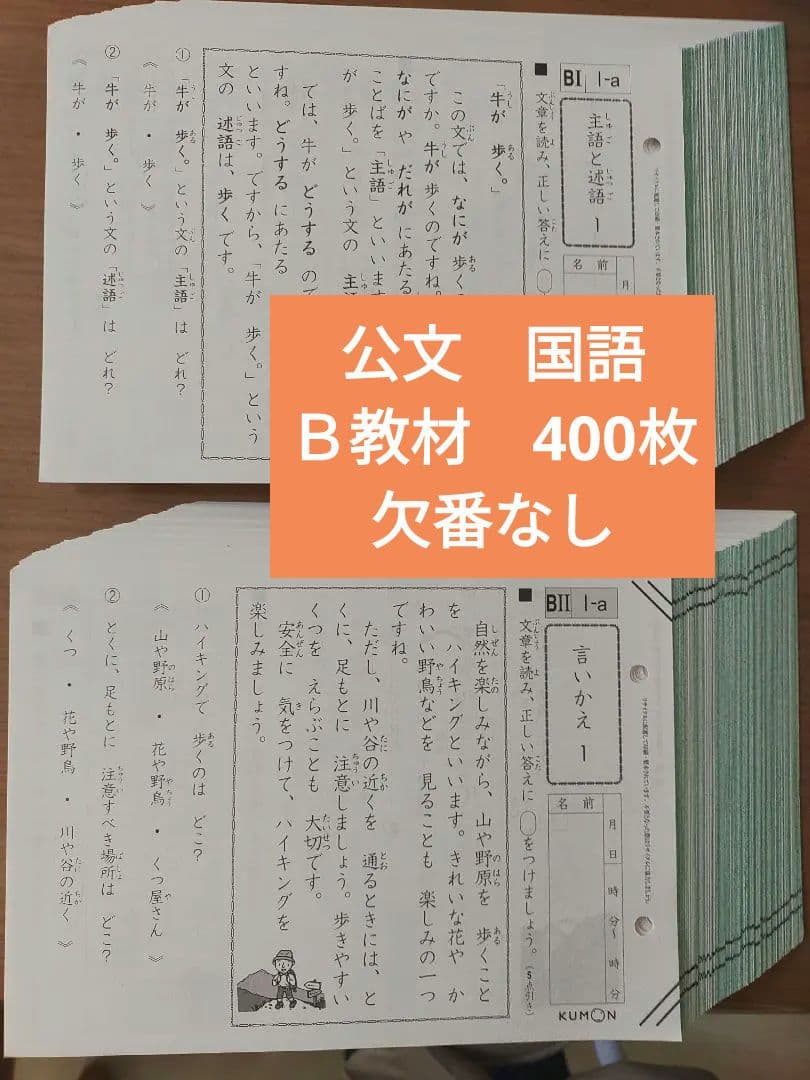 BI 1-a
主語と述語 1
名前
月
■ 文章を読み、正しい答えに
「牛が 歩く。」
この文では、なにが 歩く
ですか。牛が 歩くのですね。
なにが や だれが にあたる
ことばを「主語」といいます
が 歩く。」という文の 主語
では、牛が どうする ので
すね。どうする にあたる
といいます。ですから、「牛が 歩く。」という
文の 述語は、歩く です。
① 「牛が 歩く。」という文の「主語」は どれ?
《 牛が ・ 歩く 》
② 「牛が 歩く。」という文の「述語」は どれ?
《 牛が ・ 歩く 》
公文 国語
B教材 400枚
欠番なし
BII 1-a
言いかえ 1
名前
月 日 時 分〜 時 分
■ 文章を読み、正しい答えに ◯をつけましょう。(5点引き)
自然を楽しみながら、山や野原を 歩くこと
を ハイキングといいます。きれいな花や か
わいい野鳥などを 見ることも 楽しみの一つ
ですね。
ただし、川や谷の近くを 通るときには、と
くに、足もとに 注意しましょう。歩きやすい
くつを えらぶことも 大切です。
安全に 気をつけて、ハイキングを
楽しみましょう。
① ハイキングで 歩くのは どこ?
《 山や野原 ・ 花や野鳥 ・ くつ屋さん 》
② とくに、足もとに 注意すべき場所は どこ?
《 くつ ・ 花や野鳥 ・ 川や谷の近く 》
KUMON